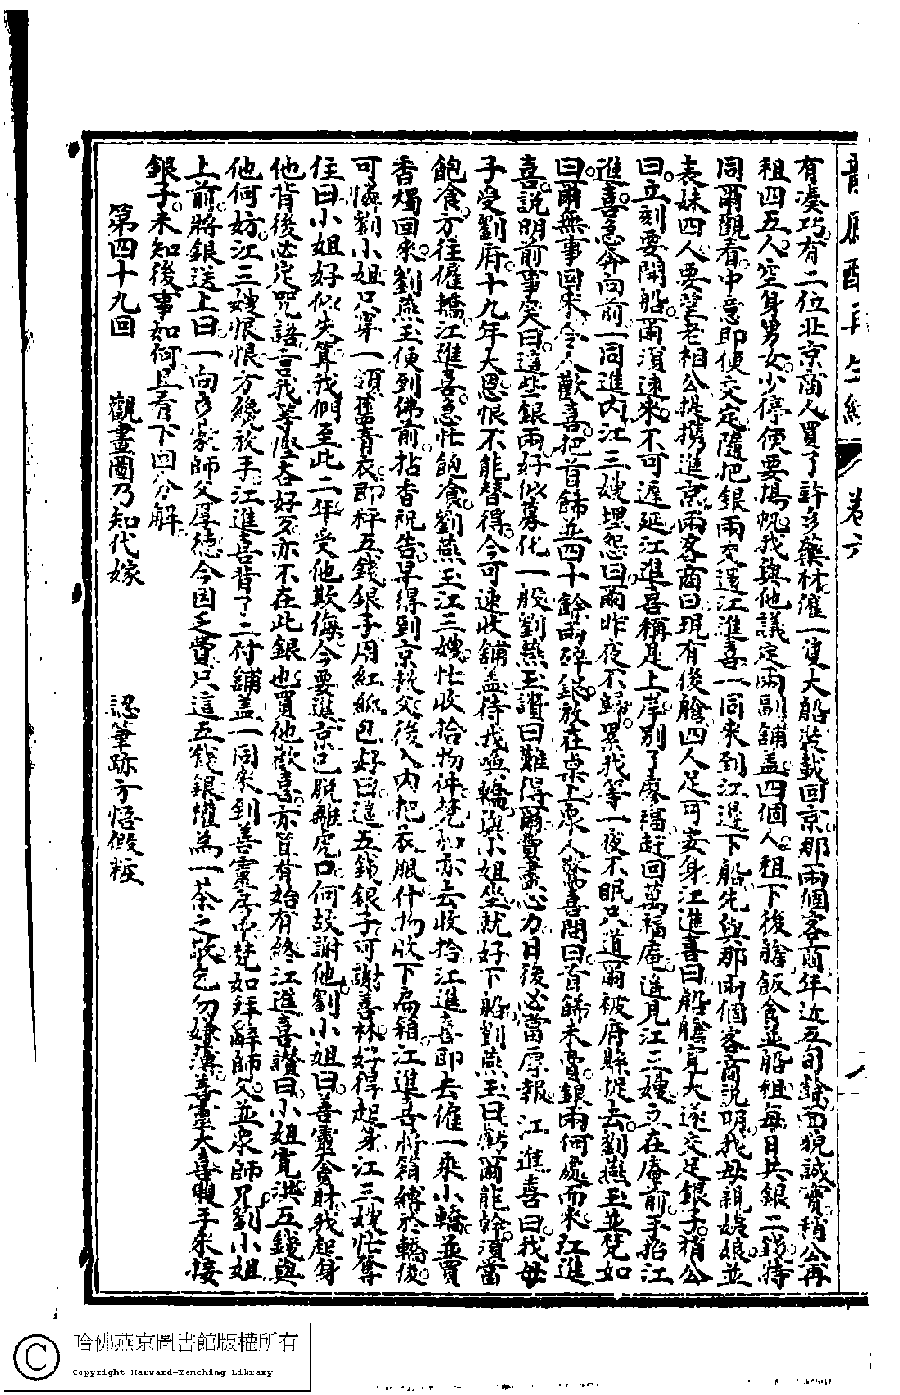 龍鳳配再生緣 卷六
有湊巧有二位北京商人買了許多藥材滙一隻大船裝載回京那兩個客商年近五旬餘面貌誠實稍公再
租四五人空身男女少停便要揚帆我與他議定兩副舖盖四個人租下後艙飯食並船租每日共銀二錢特
同爾觀看中意即便交定隨把銀兩交還江進喜一同來到江邊下船先與那兩個客商說明我母親娘娘並
表妹四人要望老相公提携進京兩客商曰現有後艙四人足可安身江進喜曰船艙寬大遂交足銀子稍公
曰立刻要開船爾須速來不可遲延江進喜稱是上岸別了廖福趕回萬福庵進見江三嫂立在庵前手招江
進喜急奔向前一同進內江三嫂埋怨曰爾昨夜不歸累我等一夜不眠只道爾被府縣捉去劉燕玉並梵如
曰爾無事回來令人歡喜把首餙並四十餘兩碎銀放在桌上衆人驚喜問曰首餙未賣銀兩何處而來江進
喜說明前事笑曰這些銀兩好似募化一般劉燕玉讚曰難得爾費盡心力日後必當厚報江進喜曰我母
子受劉府十九年大恩恨不能替得今可速收舖盖待我喚轎與小姐坐就好下船劉燕玉曰虧爾能幹須當
飽食方往僱轎江進喜急忙飽食劉燕玉江三嫂忙收拾物件梵如亦去收拾江進喜即去僱一乘小轎並買
香燭回來劉燕玉便到佛前拈香祝告早得到京救父後入內把衣服什物收下扁箱江進喜將箱縛於轎後
可憐劉小姐只穿一領舊青衣即秤五錢銀子用紅紙包好曰這五錢銀子可謝善林好得起身江三嫂忙奪
住曰小姐好似失算我們至此二年受他欺侮今要進京已脫離虎口何故謝他劉小姐曰善靈貪財我起身
他背後必定咒語言我等慳吝好歹亦不在此銀也買他歡喜亦算有始有終江進喜讚曰小姐寬洪五錢與
他何妨江三嫂恨恨方纔放手江進喜背了二付舖盖一同來到善靈房中梵如拜辭師父並衆師兄劉小姐
上前將銀送上曰一向多蒙師父厚德今因乏費只這五錢銀權爲一茶之敬乞勿嫌薄善靈大喜雙手來接
銀子未知後事如何且看下回分解
第四十九回 觀畫圖乃知代嫁 認筆跡方悟假粧
哈佛燕京圖書館版權所有
Copyright Harvard-Yenching Library